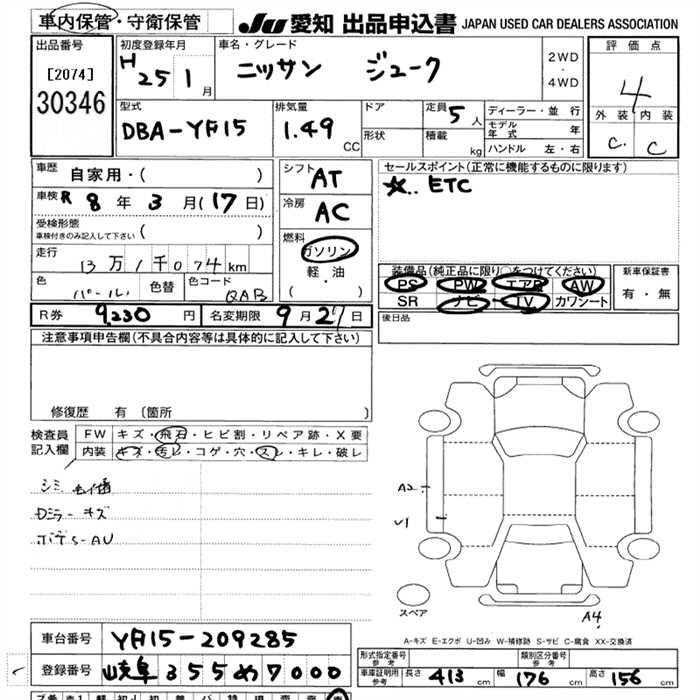 車内保管・守衛保管
JU 愛知 出品申込書 JAPAN USED CAR DEALERS ASSOCIATION
出品番号
[2074]
30346
初度登録年月
H 25 1月
車名・グレード
ニッサン ジューク
2WD
・
4WD
評価点
4
外装 内装
C. C
型式
DBA-YF15
排気量
1.49 CC
ドア
形状
定員 5人
積載 kg
ディーラー・並行
モデル年式 年
ハンドル 左・右
車歴
自家用・( )
車検 R 8年 3月(17日)
受検形態
車検付きのみ記入して下さい ( )
走行
13万1千074km
色 パール 色替 色コード QAB
シフト AT
冷房 AC
燃料
ガソリン
軽・油
( ・ )
セールスポイント(正常に機能するものに限ります)
ETC
装備品(純正品に限り○をつけてください)
PS PW エアB AW
SR ナビ TV カワシート
新車保証書
有・無
R券 9,230円 名変期限 9月27日
後日品
注意事項申告欄(不具合内容等は具体的に記入して下さい)
修復歴 有(箇所 )
検査員記入欄
FW キズ・飛石・ヒビ割・リペア跡・X要
内装 キズ・汚レ・コゲ・穴・スレ・キレ・破レ
シミ
Dミラーキズ
ボデS-AU
A2
U1
スペア
A4
A-キズ E-エクボ U-凹み W-補修跡 S-サビ C-腐食 XX-交換済
車台番号 YF15-209285
登録番号 岐阜 355 め 7000
形式指定番号 参考
類別区分番号 参考
車庫証明用 参考 長さ 413 cm 幅 176 cm 高さ 156 cm